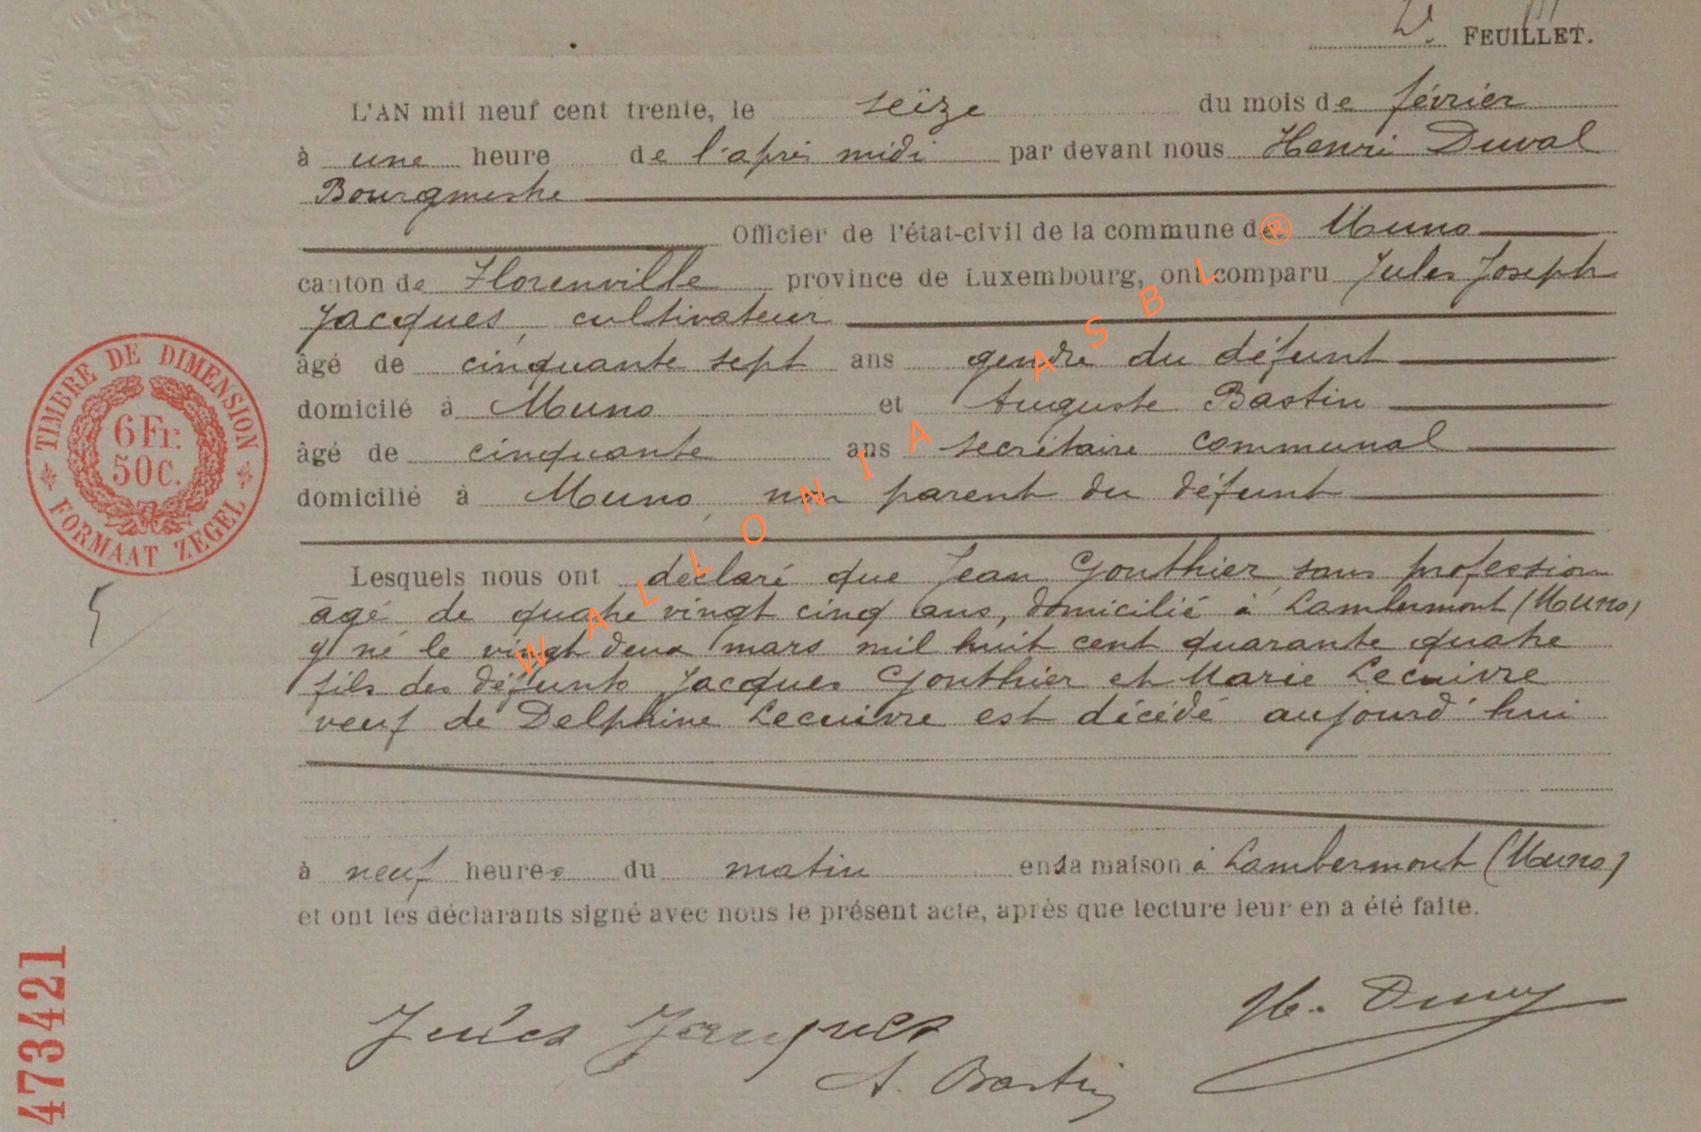 2e FEUILLET.
L'AN mil neuf cent trente, le seize du mois de février
à une heure de l'après midi par devant nous Henri Duval
Bourgmestre
Officier de l'état-civil de la commune de Muno
canton de Florenville province de Luxembourg, ont comparu Jules Joseph
Jacques, cultivateur
âgé de cinquante sept ans gendre du défunt
domicilé à Muno et Auguste Bastin
âgé de cinquante ans secrétaire communal
domicilié à Muno, non parent du défunt
Lesquels nous ont déclaré que Jean Gonthier, sans profession
âgé de quatre vingt cinq ans, domicilié à Lambermont (Muno)
y né le vingt deux mars mil huit cent quarante quatre
fils des défunts Jacques Gonthier et Marie Lecuivre
veuf de Delphine Lecuivre est décédé aujourd'hui
à neuf heures du matin en sa maison à Lambermont (Muno)
et ont les déclarants signé avec nous le présent acte, après que lecture leur en a été faite.
Jules Jacques
H. Duval
A. Bastin
TIMBRE DE DIMENSION
6 Fr.
50 C.
FORMAAT ZEGEL
5
473421
WALLONIA ASBL ®